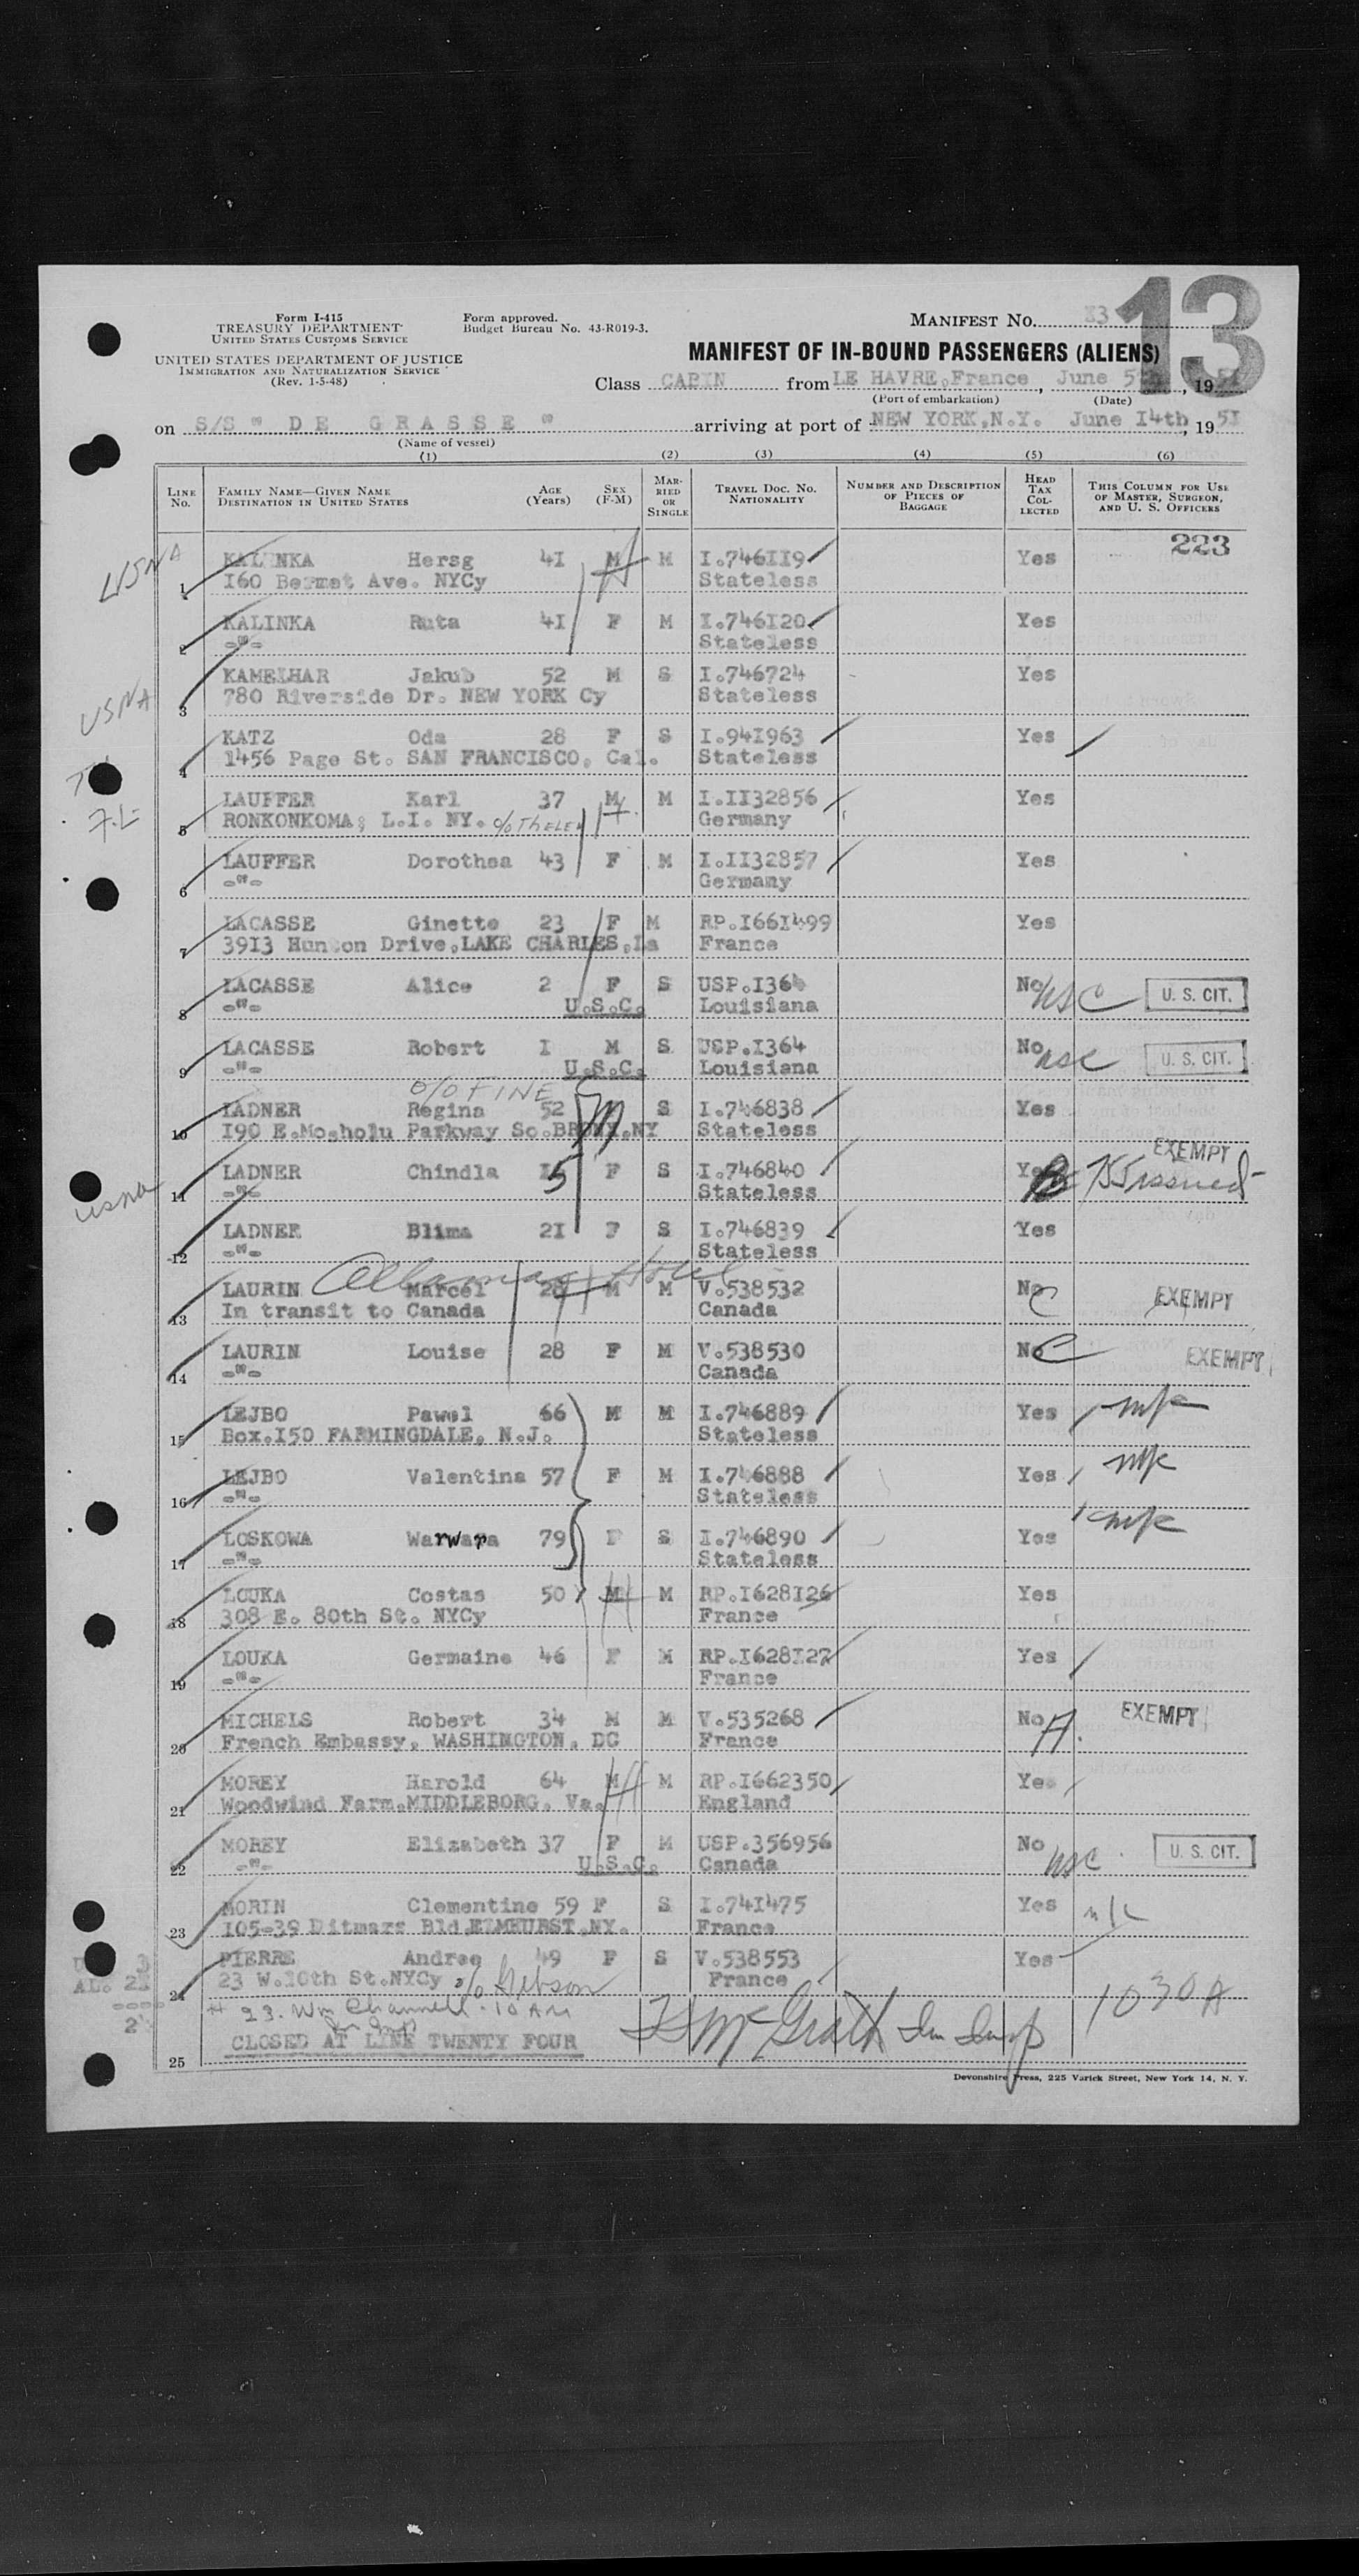 13
Form I-415
TREASURY DEPARTMENT
UNITED STATES CUSTOMS SERVICE
UNITED STATES DEPARTMENT OF JUSTICE
IMMIGRATION AND NATURALIZATION SERVICE
(Rev. 1-5-48)
Form approved.
Budget Bureau No. 43-R019-3.
MANIFEST No.
MANIFEST OF IN-BOUND PASSENGERS (ALIENS)
Class CABIN from LE HAVRE, France, June 5th, 1951
(Port of embarkation) (Date)
on S/S " DE GRASSE " arriving at port of NEW YORK, N.Y. June I4th, 1951
(Name of vessel)
(1) (2) (3) (4) (5) (6)
LINE No. FAMILY NAME—GIVEN NAME DESTINATION IN UNITED STATES AGE (Years) SEX (F-M) MARRIED OR SINGLE TRAVEL DOC. NO. NATIONALITY NUMBER AND DESCRIPTION OF PIECES OF BAGGAGE HEAD TAX COLLECTED THIS COLUMN FOR USE OF MASTER, SURGEON, AND U. S. OFFICERS
223
USNA
1 KALINKA Hersg 4I M M I.746II9 Yes
I60 Bermet Ave. NYCy Stateless
2 KALINKA Ruta 4I F M I.746I20 Yes
-"- Stateless
3 KAMELHAR Jakub 52 M S I.746724 Yes
780 Riverside Dr. NEW YORK Cy Stateless
USNA
4 KATZ Oda 28 F S I.94I963 Yes
I456 Page St. SAN FRANCISCO, Cal. Stateless
5 LAUFFER Karl 37 M M I.II32856 Yes
RONKONKOMA; L.I. NY. c/o THELEN Germany
7.L
6 LAUFFER Dorothea 43 F M I.II32857 Yes
-"- Germany
7 LACASSE Ginette 23 F M RP.I66I499 Yes
39I3 Drive, LAKE CHARLES, La France
8 LACASSE Alice 2 F S USP.I364 No USC U. S. CIT.
-"- U.S.C. Louisiana
9 LACASSE Robert I M S USP.I364 No USC U. S. CIT.
-"- U.S.C. Louisiana
c/o FINE
10 LADNER Regina 52 S I.746838 Yes
I90 E.Mosholu Parkway So.BRONX.NY Stateless
11 LADNER Chindla 5 F S I.746840 Yes EXEMPT issued
-"- Stateless
usna
12 LADNER Blima 2I F S I.746839 Yes
-"- Stateless
Hotel
13 LAURIN Marcel 28 M M V.538532 No C EXEMPT
In transit to Canada Canada
14 LAURIN Louise 28 F M V.538530 No C EXEMPT
-"- Canada
15 LEJBO Pawel 66 M M I.746889 Yes
Box.I50 FARMINGDALE, N.J. Stateless
16 LEJBO Valentina 57 F M I.746888 Yes
-"- Stateless
17 LOSKOWA Warwara 79 F S I.746890 Yes
-"- Stateless
18 LOUKA Costas 50 M M RP.I628I26 Yes
308 E. 80th St. NYCy France
19 LOUKA Germaine 46 F M RP.I628I27 Yes
-"- France
20 MICHELS Robert 34 M M V.535268 No A. EXEMPT
French Embassy, WASHINGTON, DC France
21 MOREY Harold 64 M M RP.I662350 Yes
Woodwind Farm.MIDDLEBORG, Va. England
22 MOREY Elizabeth 37 F M USP.356956 No USC U. S. CIT.
-"- U.S.C. Canada
23 MORIN Clementine 59 F S I.74I475 Yes
I05-39 Ditmars Bld.ELMHURST.NY. France
24 PIERRE Andree 49 F S V.538553 Yes
23 W.I0th St.NYCy c/o Gibson France
23. Wm Channell. 10 AM
Im Insp
McGrath Im Insp 1030A
25 CLOSED AT LINE TWENTY FOUR
Devonshire Press, 225 Varick Street, New York 14, N. Y.